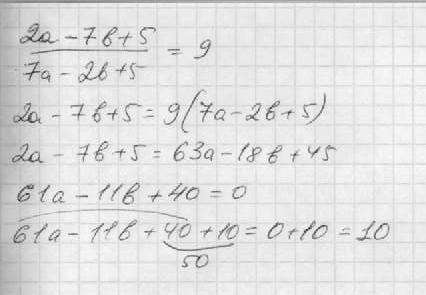 2a - 7b + 5
7a - 2b + 5 = 9
2a - 7b + 5 = 9(7a - 2b + 5)
2a - 7b + 5 = 63a - 18b + 45
61a - 11b + 40 = 0
61a - 11b + 40 + 10 = 0 + 10 = 10
50